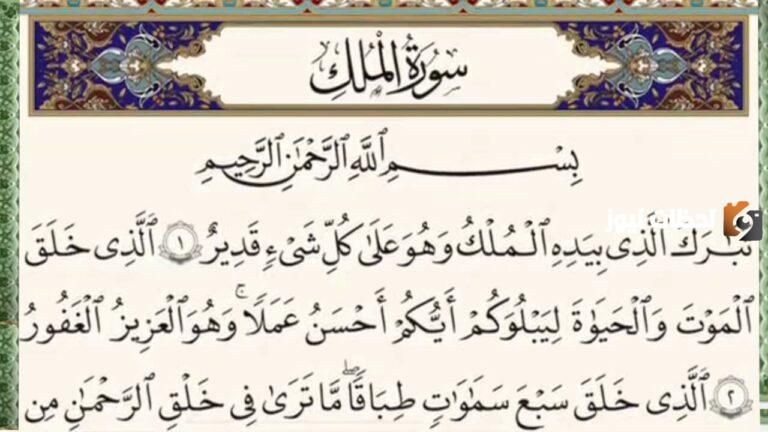 سُورَةُ الْمُلْكِ
بِسْمِ ٱللَّهِ ٱلرَّحْمَٰنِ ٱلرَّحِيمِ
تَبَٰرَكَ ٱلَّذِى بِيَدِهِ ٱلْمُلْكُ وَهُوَ عَلَىٰ كُلِّ شَىْءٍ قَدِيرٌ ١ ٱلَّذِى خَلَقَ
لحظات نيوز
ٱلْمَوْتَ وَٱلْحَيَوٰةَ لِيَبْلُوَكُمْ أَيُّكُمْ أَحْسَنُ عَمَلًا ۚ وَهُوَ ٱلْعَزِيزُ ٱلْغَفُورُ
٢ ٱلَّذِى خَلَقَ سَبْعَ سَمَٰوَٰتٍ طِبَاقًا ۖ مَّا تَرَىٰ فِى خَلْقِ ٱلرَّحْمَٰنِ مِن